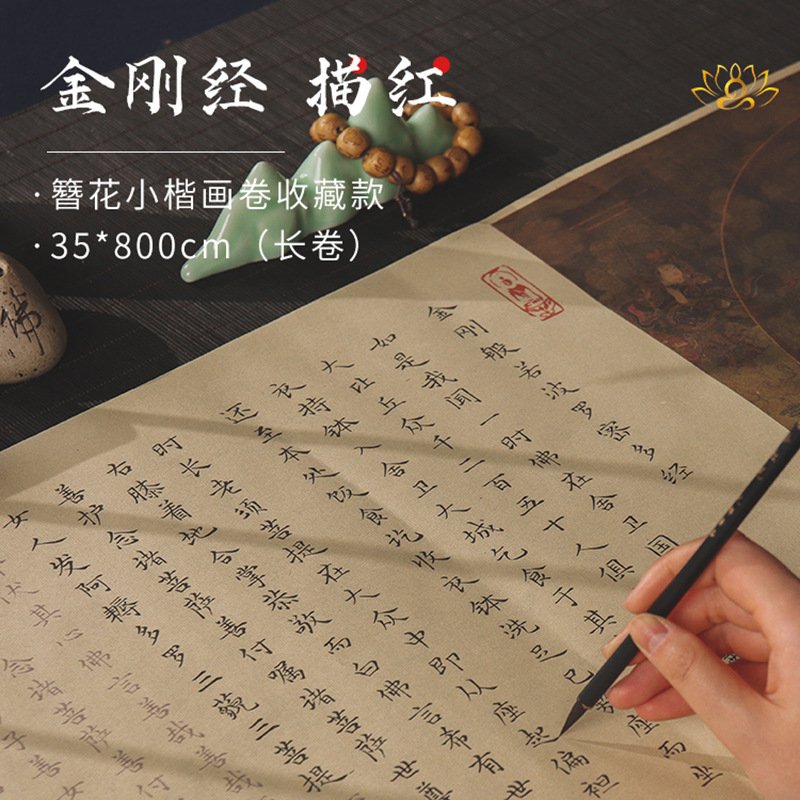 金刚经 描红
·簪花小楷画卷收藏款
·35*800cm（长卷）
佛
金刚般若波罗密多经
如是我闻一时佛在舍卫国
大比丘众千二百五十人俱
衣持钵入舍卫大城乞食于其
还至本处饭食讫收衣钵洗足已敷座而坐
时长老须菩提在大众中即从座起偏袒
右膝着地合掌恭敬而白佛言希有世
善护念诸菩萨善付嘱诸菩萨世尊
女人发阿耨多罗三藐三菩提
伏其心佛言善哉善哉
念诸菩萨善付
子善女